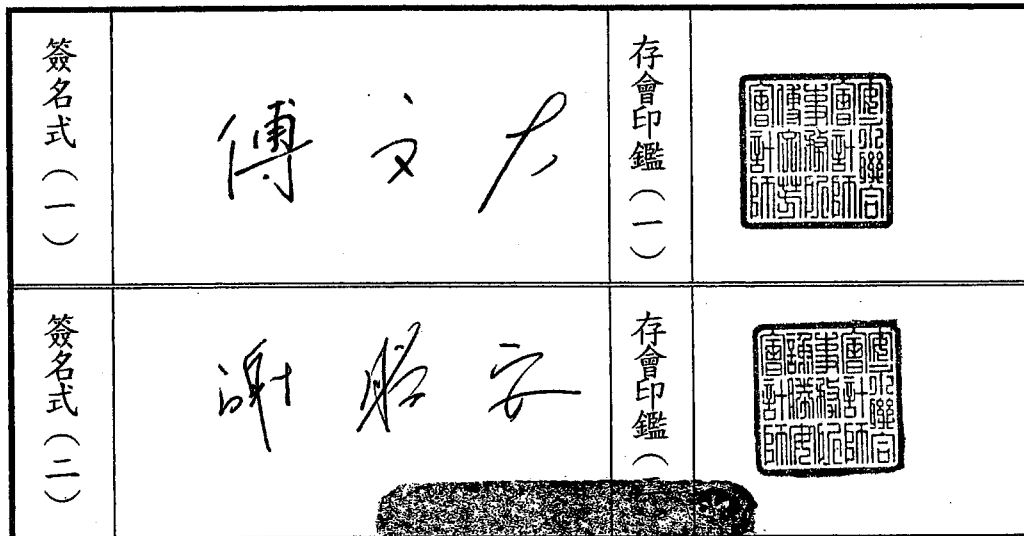 簽名式（一）
傅文芳
存會印鑑（一）
安永聯合
會計師
事務所
傅文芳
會計師
簽名式（二）
謝勝安
存會印鑑（
安永聯合
會計師
事務所
謝勝安
會計師